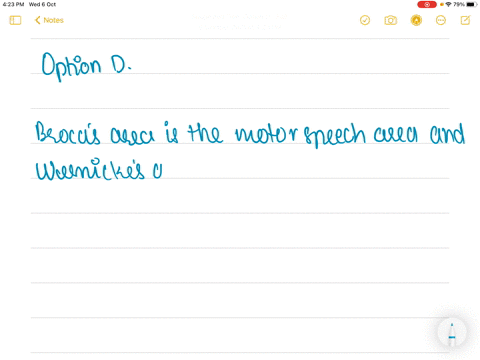 4:23 PM Wed 6 Oct
79%
Notes
Option D.
Broca's area is the motor speech area and
Wernicke's a